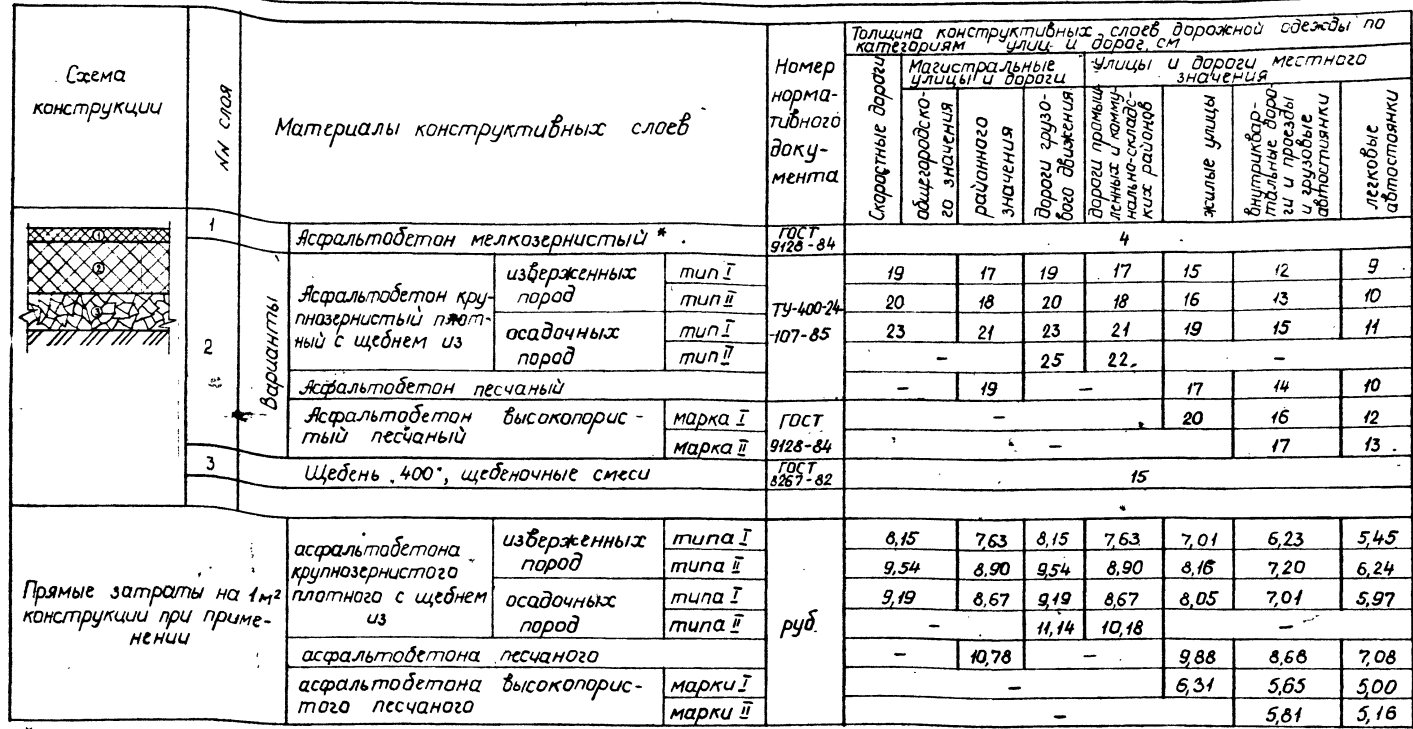 Схема
конструкции
NN слоя
Материалы конструктивных слоев
Номер
норма-
тивного
доку-
мента
Толщина конструктивных слоев дорожной одежды по
категориям улиц и дорог, см
Скоростные дороги
Магистральные
улицы и дороги
Улицы и дороги местного
значения
общегородско-
го значения
районного
значения
Дороги грузо-
вого движения
Дороги промыш-
ленных и комму-
нально-складс-
ких районов
жилые улицы
Внутриквар-
тальные доро-
ги и проезды
и грузовые
автостоянки
легковые
автостоянки
1
2
3
1 Асфальтобетон мелкозернистый * ГОСТ
9128-84 4
2 Варианты
Асфальтобетон кру-
пнозернистый плот-
ный с щебнем из
изверженных
пород
тип I 19 17 19 17 15 12 9
тип II 20 18 20 18 16 13 10
ТУ-400-24-
-107-85
осадочных
пород
тип I 23 21 23 21 19 15 11
тип II – 25 22 –
Асфальтобетон песчаный – 19 – 17 14 10
Асфальтобетон высокопорис-
тый песчаный
марка I – 20 16 12
марка II – 17 13
ГОСТ
9128-84
3 Щебень „400", щебеночные смеси ГОСТ
8267-82 15
Прямые затраты на 1м²
конструкции при приме-
нении
асфальтобетона
крупнозернистого
плотного с щебнем
из
изверженных
пород
типа I 8,15 7,63 8,15 7,63 7,01 6,23 5,45
типа II 9,54 8,90 9,54 8,90 8,16 7,20 6,24
осадочных
пород
типа I 9,19 8,67 9,19 8,67 8,05 7,01 5,97
типа II – 11,14 10,18 –
руб.
асфальтобетона песчаного – 10,78 – 9,88 8,68 7,08
асфальтобетона высокопорис-
того песчаного
марки I – 6,31 5,65 5,00
марки II – 5,81 5,16